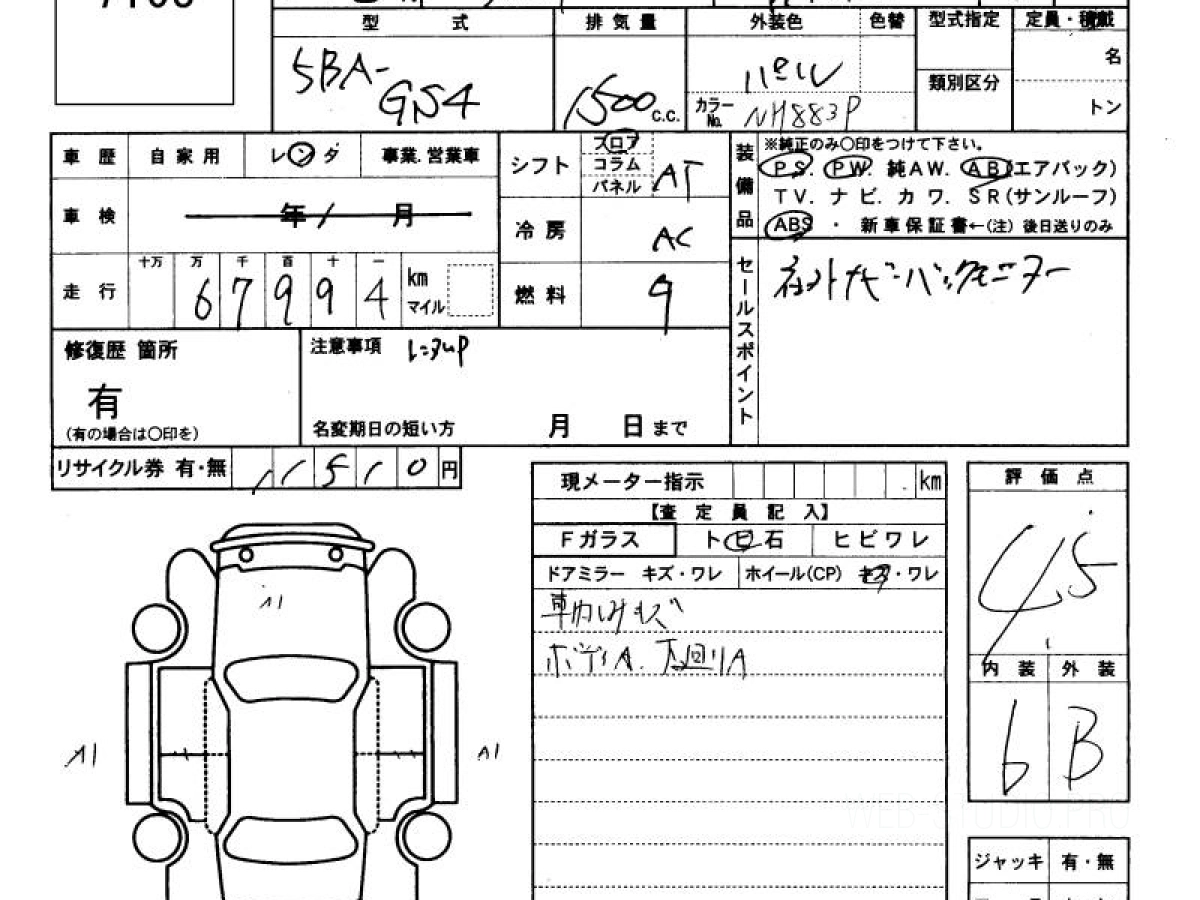 型 式 排気量 外装色 色替 型式指定 定員・積載
5BA-
GS4
1500 c.c.
パール
カラーNo. NH883P
類別区分
名
トン
車歴 自家用 レンタ 事業.営業車
シフト フロア コラム パネル AT
装備品
※純正のみ〇印をつけて下さい。
PS. PW. 純AW. AB(エアバック)
TV. ナビ. カワ. SR(サンルーフ)
ABS ・ 新車保証書←(注) 後日送りのみ
車検 年 / 月
冷房 AC
走行 十万 万 千 百 十 一
6 7 9 9 4 km マイル
燃料 9
セールスポイント
社外ナビ・バックモニター
修復歴 箇所
有
(有の場合は〇印を)
注意事項 レンタUP
名変期日の短い方 月 日 まで
リサイクル券 有・無 11510 円
現メーター指示 . km
【査定員記入】
Fガラス ト日石 ヒビワレ
ドアミラー キズ・ワレ ホイール(CP) キズ・ワレ
車内しみキズ
ボディA. 下廻りA
評価点
4.5
内装 外装
6 B
A1
A1
A1
ジャッキ 有・無